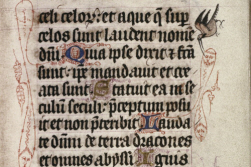 celi celoꝝ: et aque q̄ sup̄
celos sunt laudent nome
dn̄i Quia ipse dixit ⁊ fcā
sunt: ipe mandauit et cre
ata sunt Statuit ea in se
culum seculi: p̄ceptum posu
it et non p̄teribit Lauda
te dn̄m de terra dracones
et omnes abyssi Ignis